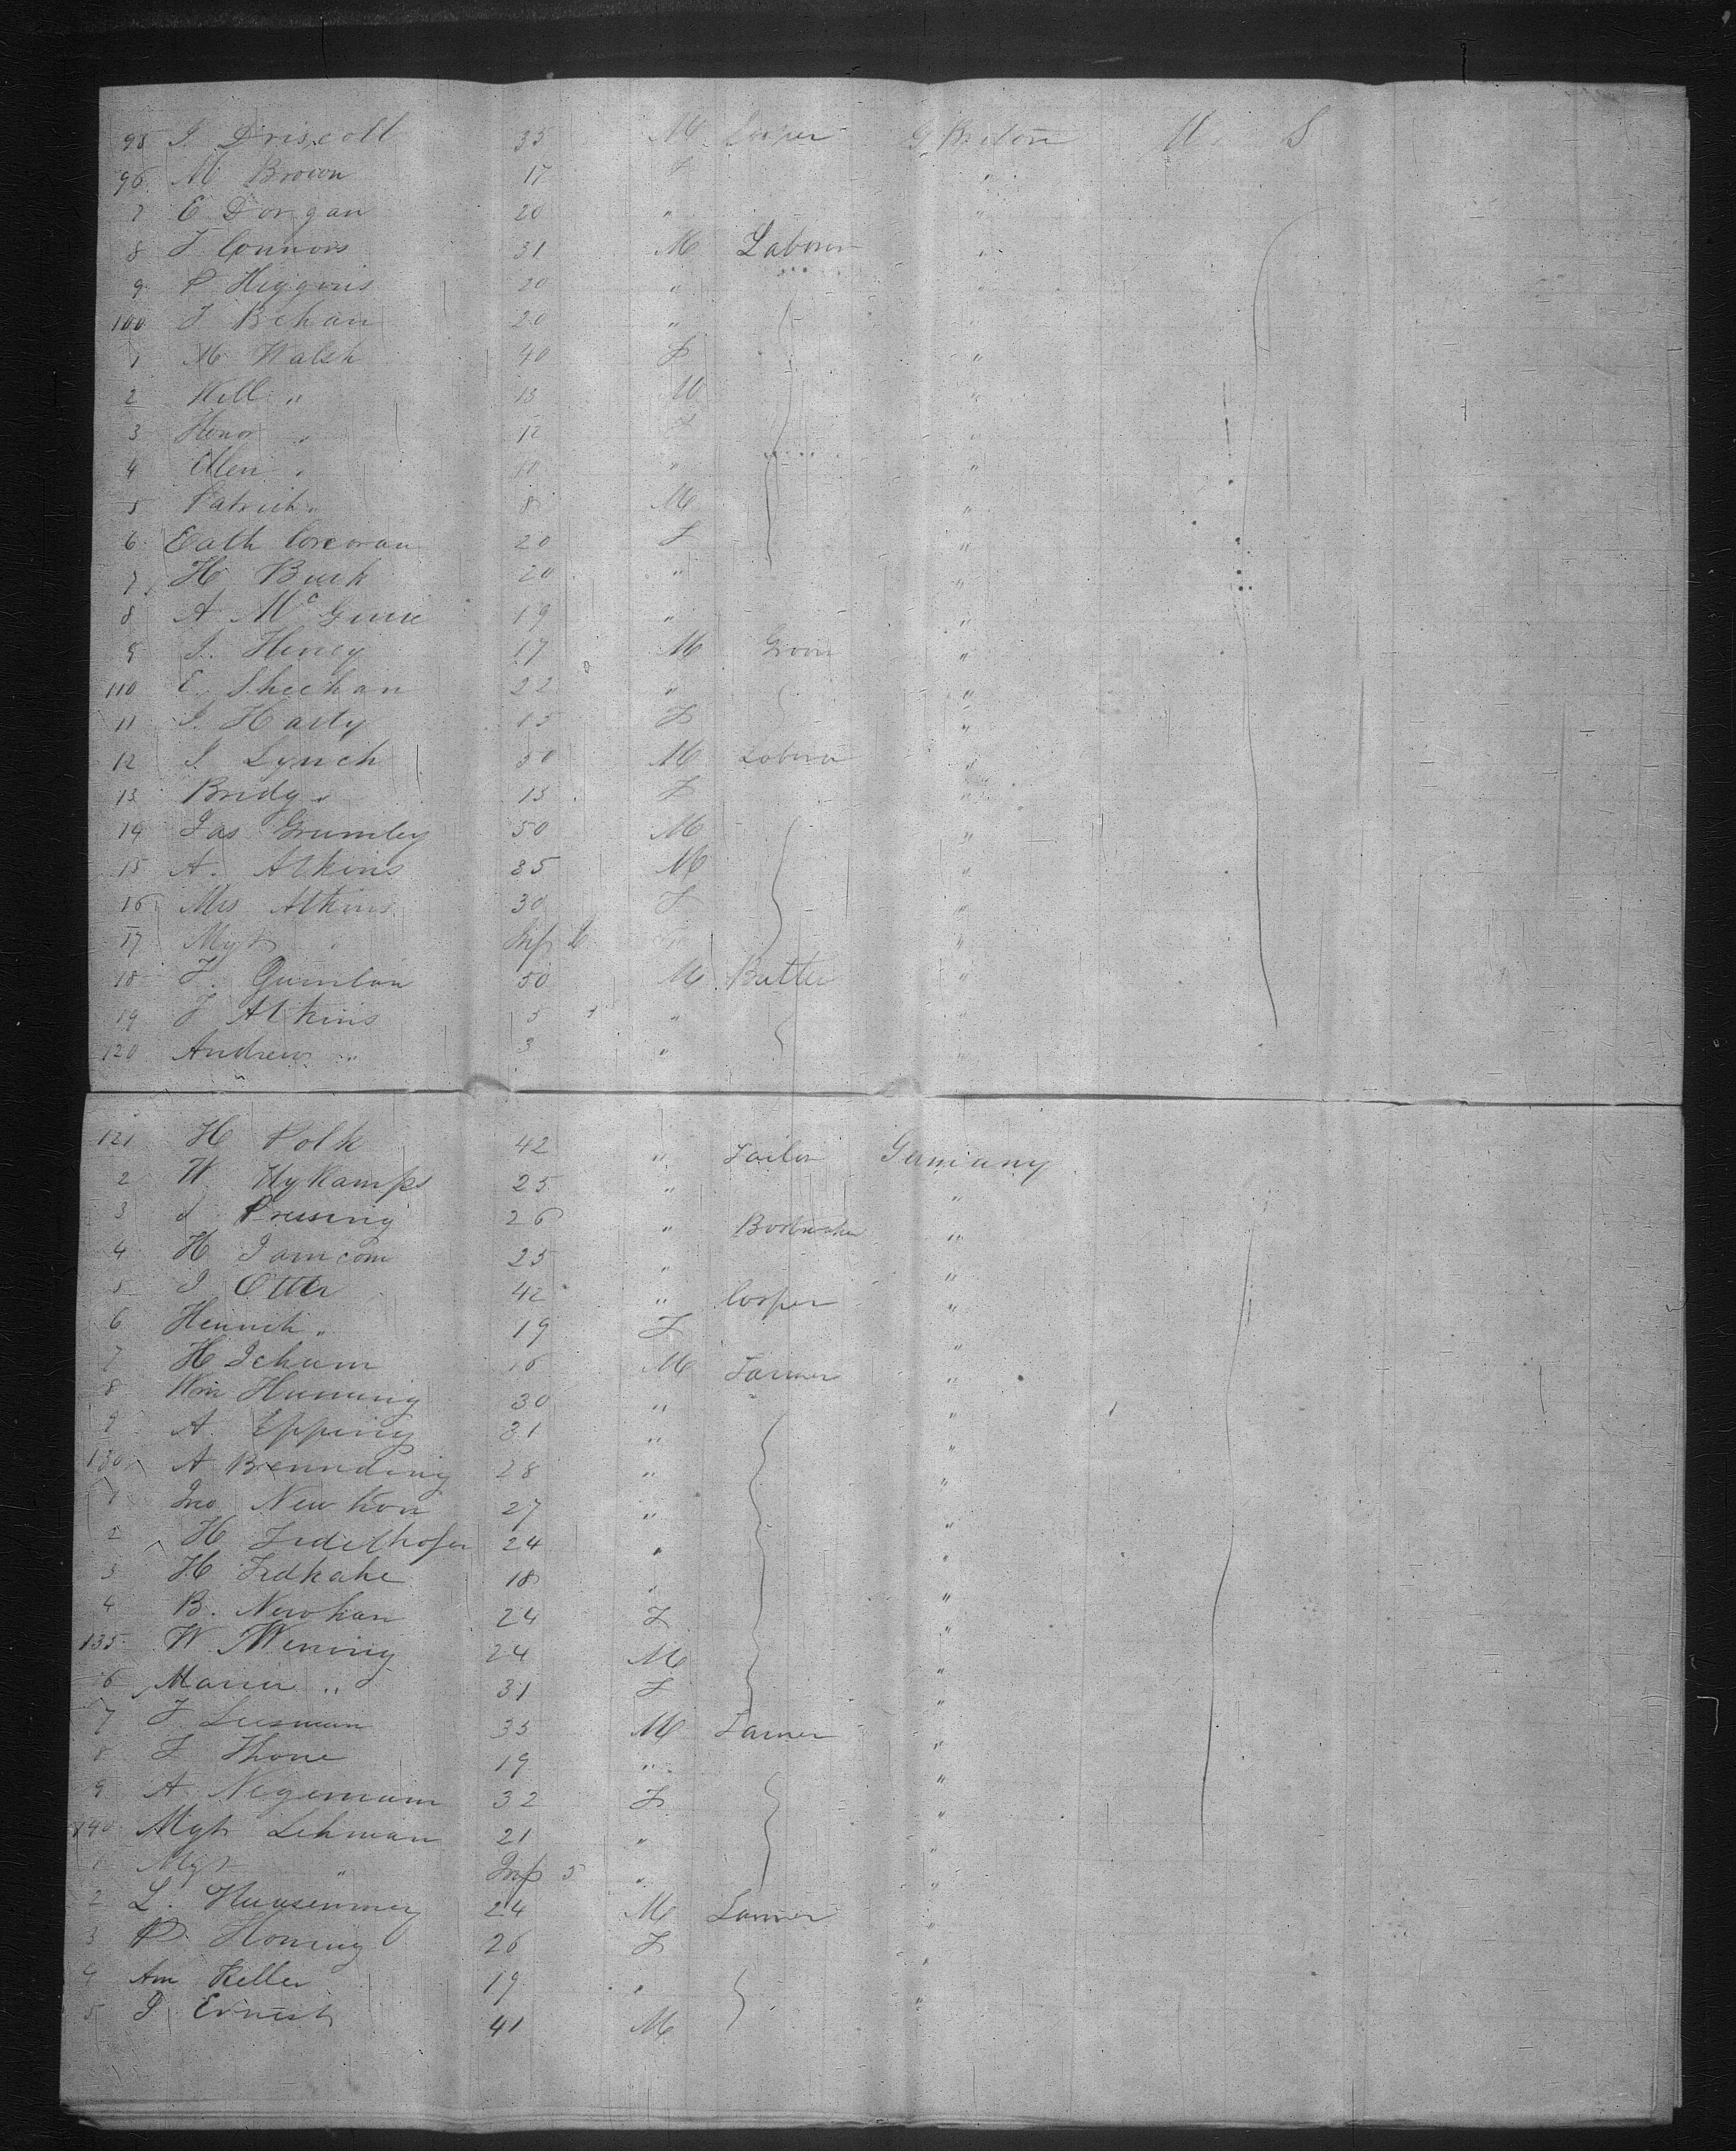 95 J Driscoll 35 M Cooper G Britain U. S
96 M Brown 17 F "
7 E Dorgan 20 " "
8 J Connors 31 M Laborer "
9 P Higgins 20 " "
100 J Behan 20 "
1 M Walsh 40 F "
2 Will " 13 M "
3 Honor " 12 F "
4 Ellen " 10 " "
5 Patrick " 8 M "
6 Cath Corcoran 20 F "
7 H Burk 20 " "
8 A McGuire 19 " "
9 J. Heney 17 M Groom "
110 E. Sheehan 22 " "
11 J. Harty 15 F "
12 J Lynch 50 M Laborer "
13 Bridg " 13 F "
14 Jas Grumley 50 M "
15 A. Atkins 35 M "
16 Mrs Atkins 30 F "
17 Mgt " Inf "
18 J. Quinlan 50 M Butler "
19 J Atkins 5 "
120 Andrew " 3 "
121 H Polk 42 " Tailor Germany
2 W HyKamps 25 " "
3 J Preusing 26 " "
4 H 25 " "
5 J Otter 42 " Cooper "
6 Heinrich " 19 F "
7 H Schum 16 M Farmer "
8 Wm Hunning 30 " " "
9 A. Epping 31 " "
130 A Bennding 28 " "
1 Jno Newkon 27 " "
2 H 24 " "
3 H 18 " "
4 B. Newkan 24 F "
135 W Wening 24 M "
6 " 31 F "
7 J Leesman 35 M Farmer "
8 F Thone 19 " "
9 A Negemann 32 F "
140 Mgt Lehman 21 " "
1 Mgt " Inf 5 " "
2 L. 24 M Farmer "
3 Honing 26 F "
4 Am Keller 19 " "
5 J Ernest 41 M